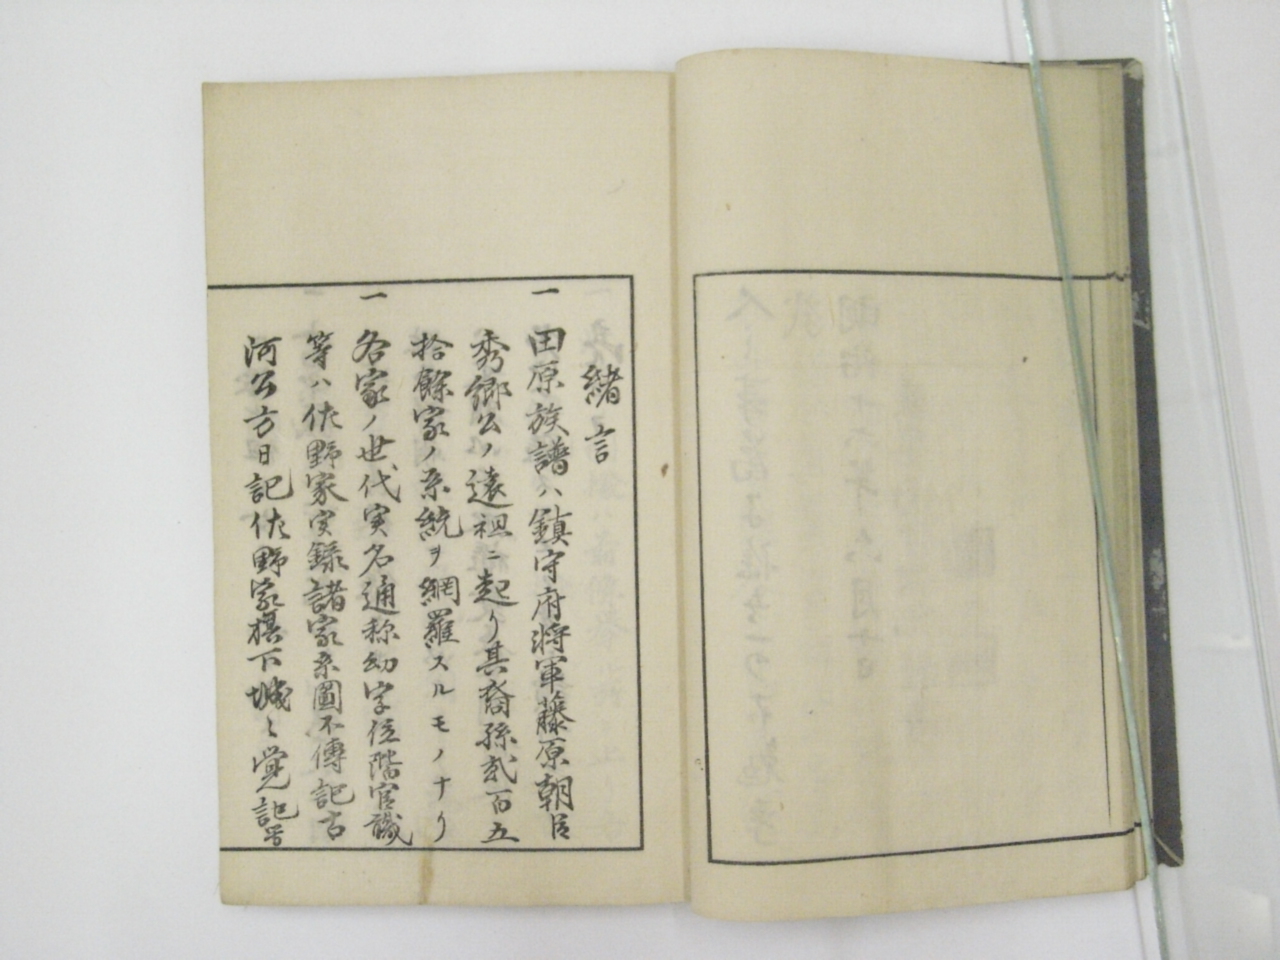 緒言
一 田原族譜ハ鎮守府将軍藤原朝臣
秀郷公ノ遠祖ニ起リ其裔孫貮百五
拾餘家ノ系統ヲ網羅スルモノナリ
一 各家ノ世代実名通称幼字位階官職
等ハ佐野家実録諸家系圖不傳記古
河公方日記佐野家旗下城々覚記等